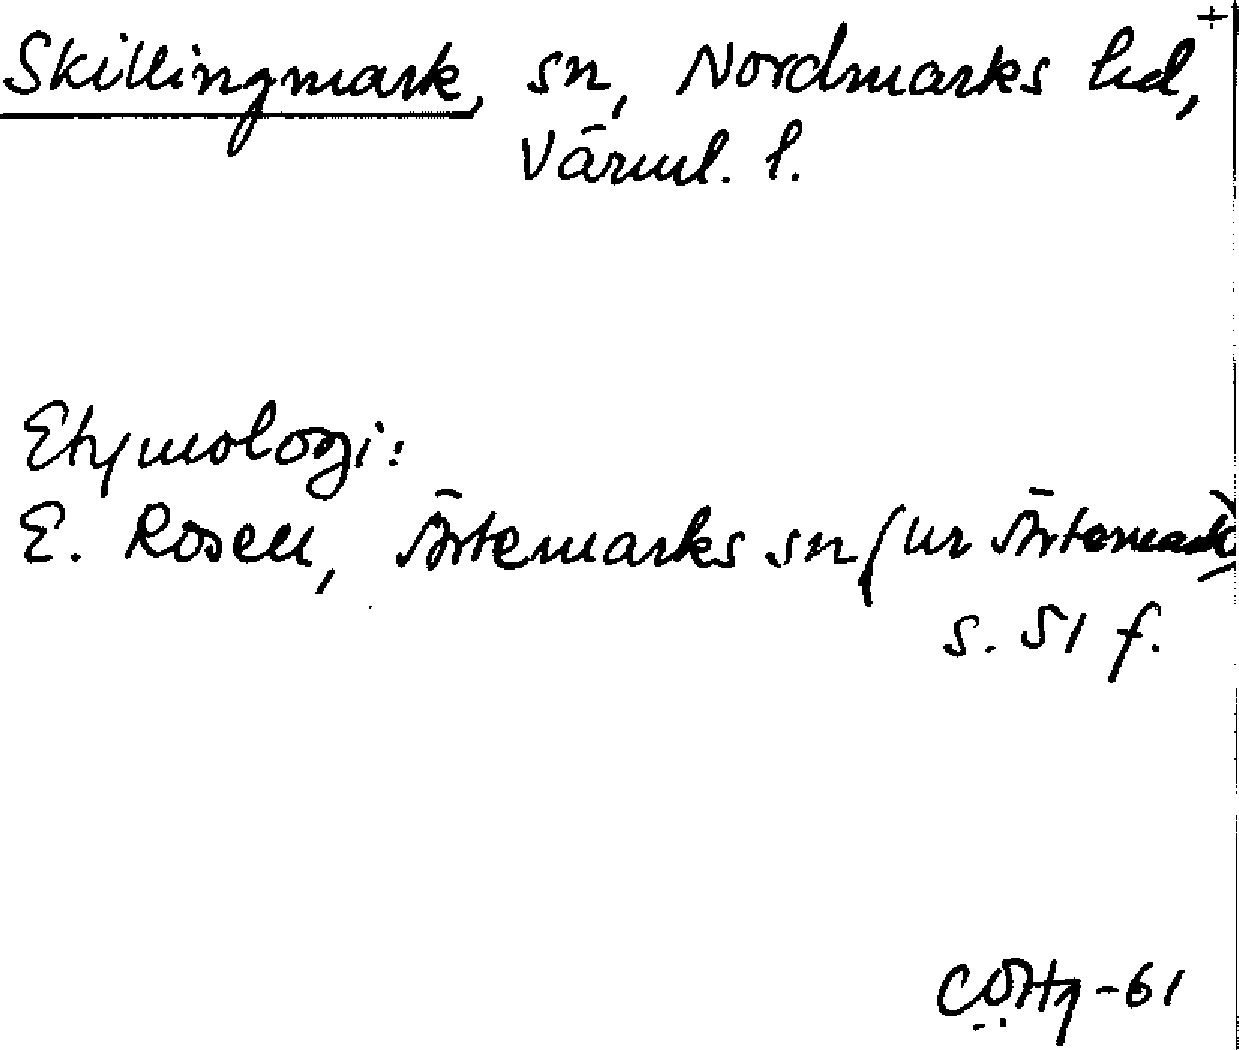 Skillingmark, sn, Nordmarks hd, +
Värml. l.
Etymologi:
E. Rosell, Ärtemarks sn (ur Ärtemark)
s. 51 f.
CÖHg-61